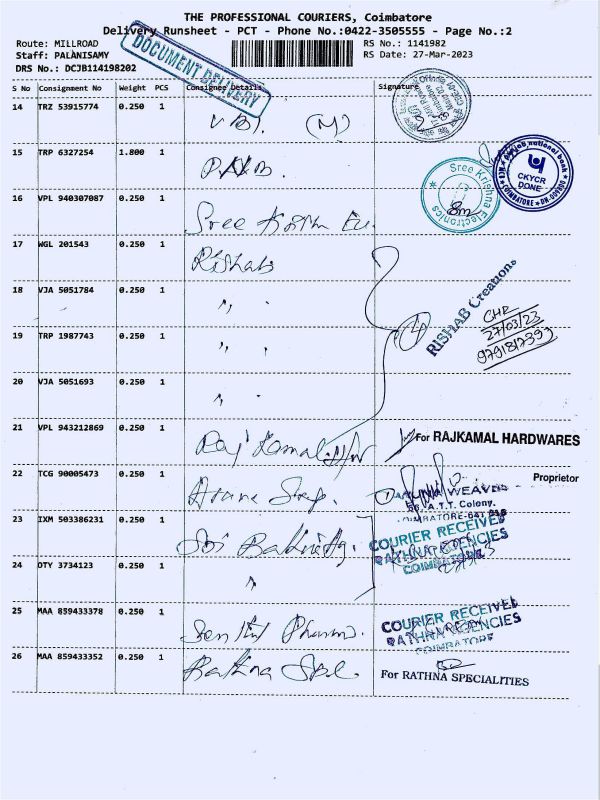 THE PROFESSIONAL COURIERS, Coimbatore
Delivery Runsheet - PCT - Phone No.:0422-3505555 - Page No.:2
Route: MILLROAD
RS No.: 1141982
Staff: PALANISAMY
RS Date: 27-Mar-2023
DRS No.: DCJB114198202
DOCUMENT DELIVERY
S No Consignment No Weight PCS Consignee Details Signature
14 TRZ 53915774 0.250 1 (M)
15 TRP 6327254 1.800 1
Sree Krishna Electronics
punjab national bank
CKYCR
DONE
COIMBATORE
16 VPL 940307087 0.250 1 Sree
17 WGL 201543 0.250 1 Rishab
18 VJA 5051784 0.250 1 " "
RISHAB Creations
27/03/23
9791817393
4
19 TRP 1987743 0.250 1 " "
20 VJA 5051693 0.250 1 " "
21 VPL 943212869 0.250 1 Raj Kamal H/W
For RAJKAMAL HARDWARES
Proprietor
22 TCG 90005473 0.250 1
WEAVES
A.T.T. Colony.
23 IXM 503386231 0.250 1 Sri
COURIER RECEIVED
RATHNA AGENCIES
COIMBATORE
24 OTY 3734123 0.250 1 "
25 MAA 859433378 0.250 1 Senthil Pharma.
COURIER RECEIVED
RATHNA AGENCIES
COIMBATORE
26 MAA 859433352 0.250 1 Rathna Spl.
For RATHNA SPECIALITIES